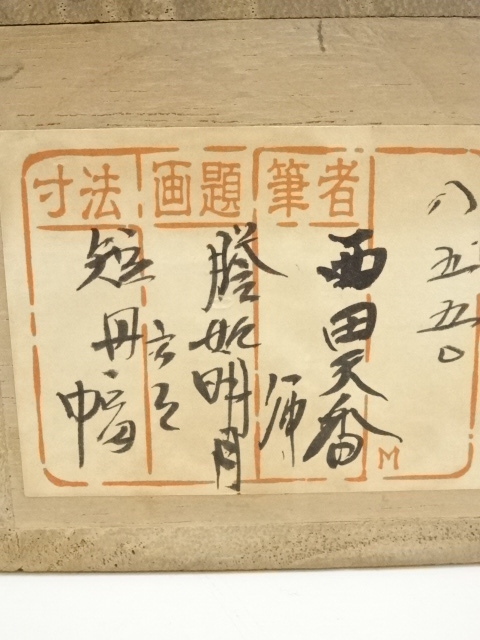 八五五〇
筆者
西田天香
師
画題
如明月
寸法
短冊幅
M